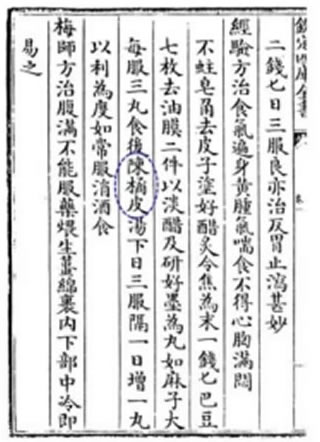 欽定四庫全書
二錢七日三服良亦治反胃止瀉甚妙
經驗方治食氣遍身黃腫氣喘食不得心胸滿悶
不蛀皂角去皮子塗好醋炙令焦為末一錢七巴豆
七枚去油膜二件以淡醋及研好墨為丸如麻子大
每服三丸食後陳橘皮湯下日三服隔一日增一丸
以利為度如常服消酒食
梅師方治腹滿不能服藥煨生薑綿裹内下部中冷即
易之